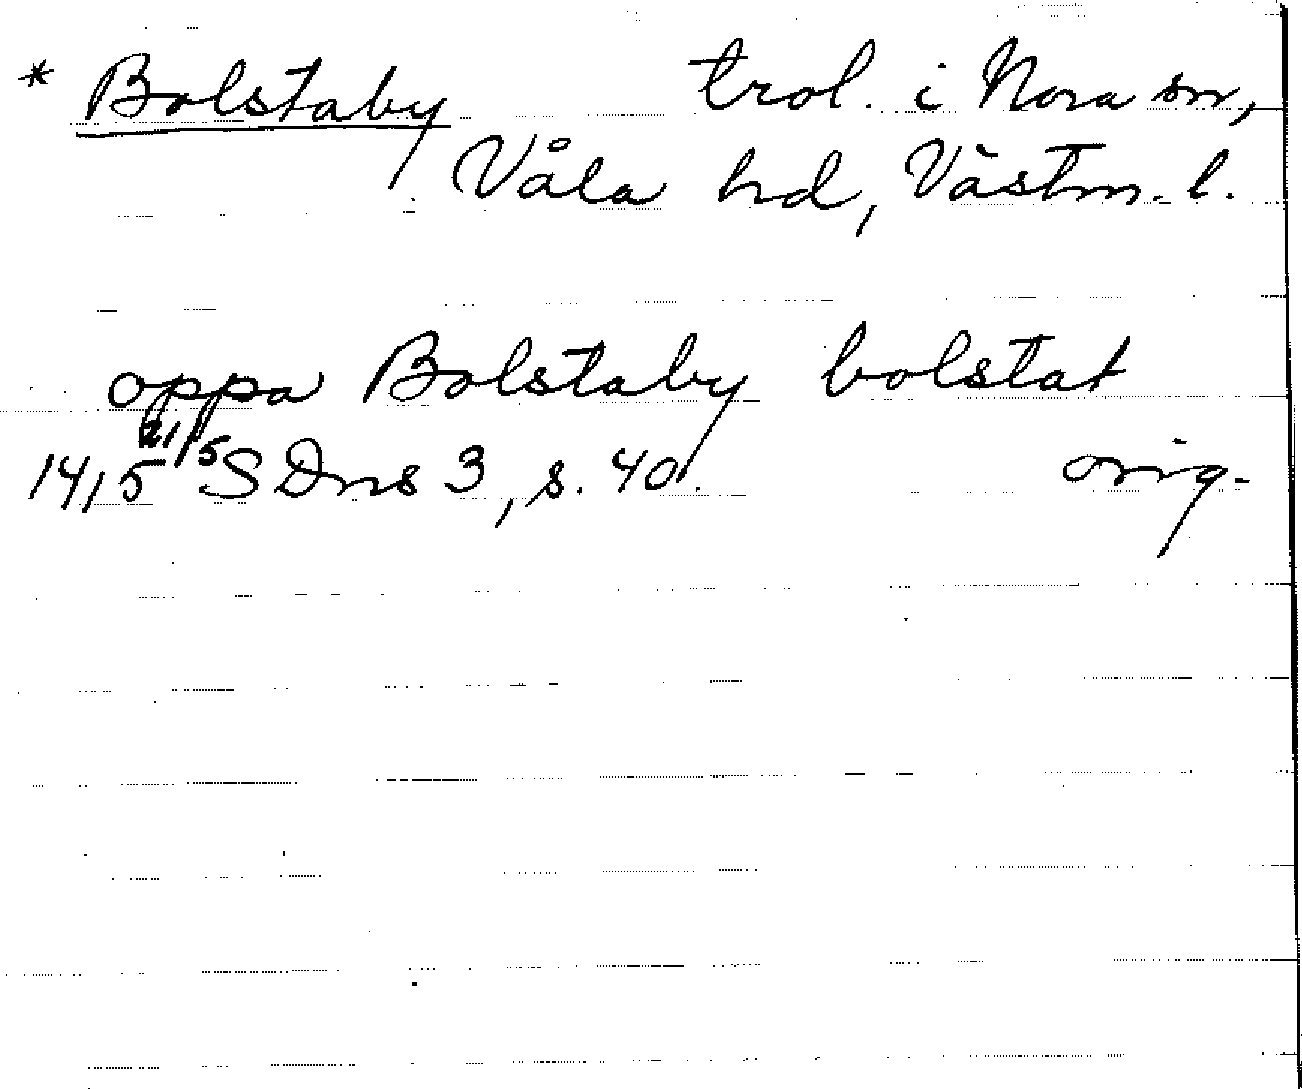 * Bolstaby trol. i Nora sn,
Våla hd, Västm. l.
oppa Bolstaby bolstat
1415 21/5 SDns 3, s. 40. orig.